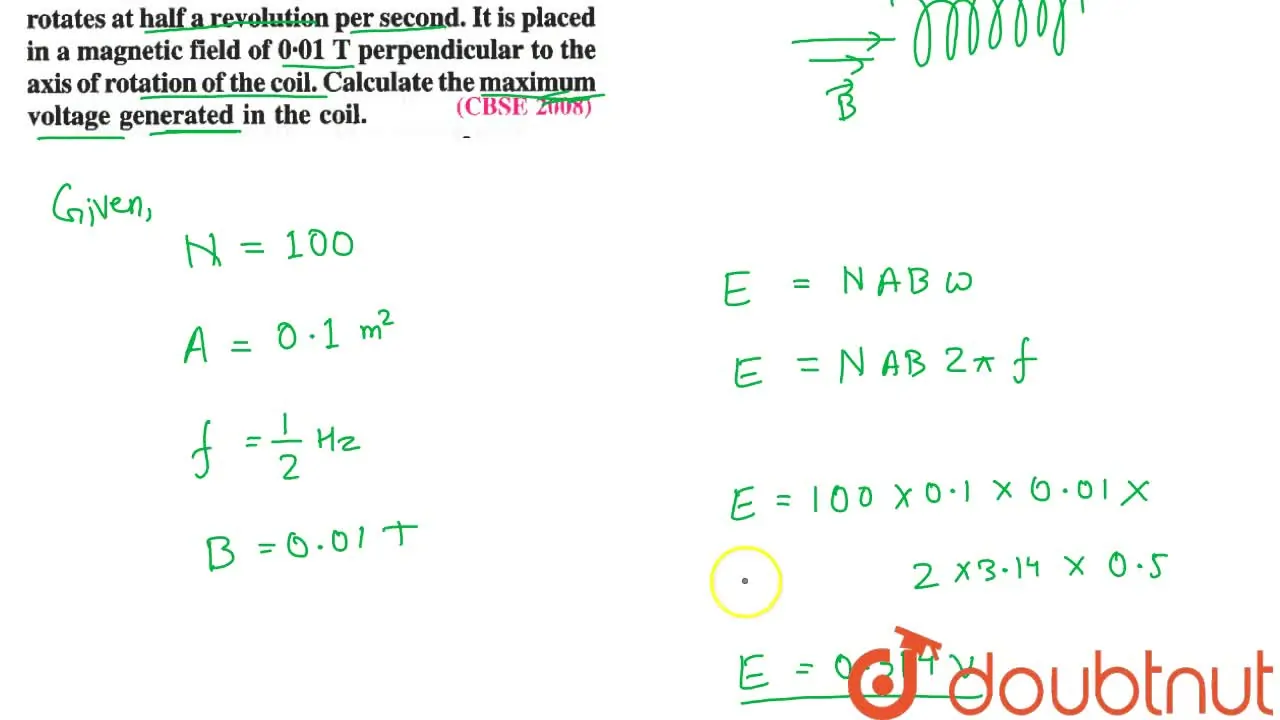 rotates at half a revolution per second. It is placed
in a magnetic field of 0·01 T perpendicular to the
axis of rotation of the coil. Calculate the maximum
voltage generated in the coil.
(CBSE 2008)
B
Given,
N = 100
A = 0.1 m²
f = 1/2 Hz
B = 0.01 T
E = NABω
E = NAB 2π f
E = 100 × 0.1 × 0.01 ×
2 × 3.14 × 0.5
E = 0.314 V
doubtnut